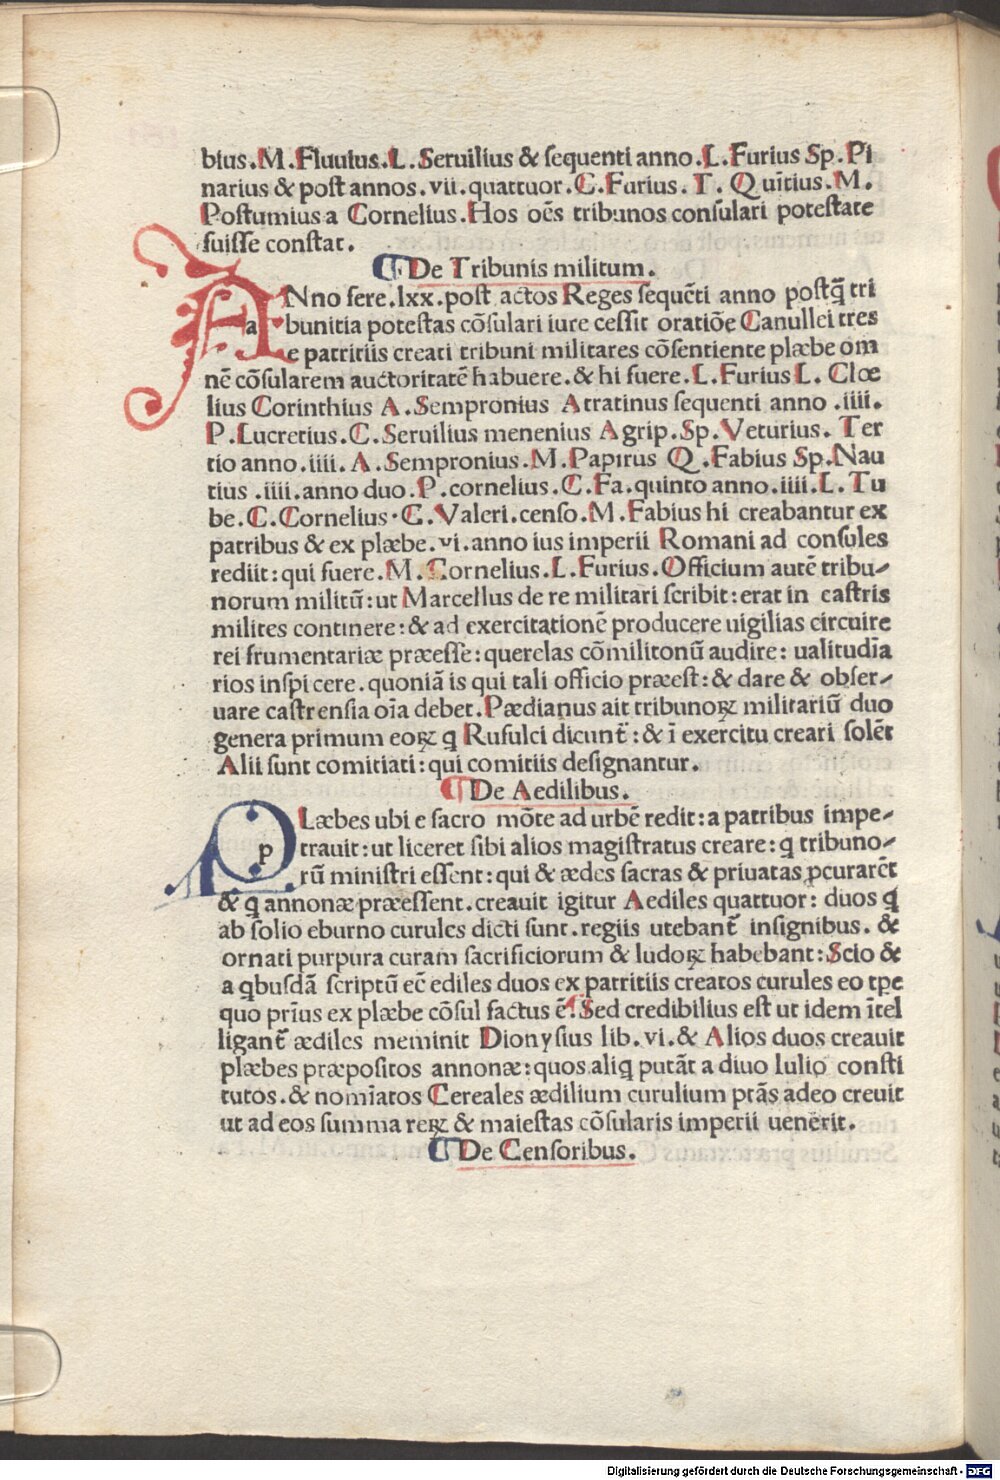 bius.M.Fluuius.L.Seruilius & sequenti anno.L.Furius Sp.Pi
narius & post annos.vii.quattuor.C.Furius.T.Quĩtius.M.
Postumius a Cornelius.Hos oẽs tribunos consulari potestate
fuisse constat.
¶De Tribunis militum.
ANno fere.lxx.post actos Reges sequẽti anno postq̃ tri
a bunitia potestas cõsulari iure cessit oratiõe Canullei tres
e patritiis creati tribuni militares cõsentiente plæbe om
nẽ cõsularem auctoritatẽ habuere.& hi fuere.L.Furius L. Clœ
lius Corinthius A.Sempronius Atratinus sequenti anno .iiii.
P.Lucretius.C.Seruilius menenius Agrip.Sp.Veturius. Ter
tio anno.iiii.A.Sempronius.M.Papirus Q.Fabius Sp.Nau
tius .iiii.anno duo.P.cornelius.C.Fa.quinto anno.iiii.L.Tu
be.C.Cornelius.C.Valeri.censo.M.Fabius hi creabantur ex
patribus & ex plæbe.vi.anno ius imperii Romani ad consules
rediit:qui fuere.M.Cornelius.L.Furius.Officium autẽ tribu-
norum militũ:ut Marcellus de re militari scribit:erat in castris
milites continere:& ad exercitationẽ producere uigilias circuire
rei frumentariæ præesse:querelas cõmilitonũ audire: ualitudia
rios inspicere.quoniã is qui tali officio præest:& dare & obser-
uare castrensia oĩa debet.Pædianus ait tribunoꝝ militariũ duo
genera primum eoꝝ q Rufulci dicunt̃:& ĩ exercitu creari solẽt
Alii sunt comitiati:qui comitiis designantur.
¶De Aedilibus.
PLæbes ubi e sacro mõte ad urbẽ redit:a patribus impe-
p trauit:ut liceret sibi alios magistratus creare:q tribuno-
rũ ministri essent:qui & ædes sacras & priuatas ꝓcurarẽt
& q annonæ præessent.creauit igitur Aediles quattuor: duos q
ab solio eburno curules dicti sunt.regiis utebant̃ insignibus. &
ornati purpura curam sacrificiorum & ludoꝝ habebant:Scio &
a qbusdã scriptũ eẽ ediles duos ex patritiis creatos curules eo tꝑe
quo prĩus ex plæbe cõsul factus ẽ.¶Sed credibilius est ut idem ĩtel
ligant̃ ædiles meminit Dionysius lib.vi.& Alios duos creauit
plæbes præpositos annonæ:quos aliq putãt a diuo Iulio consti
tutos.& nomĩatos Cereales ædilium curulium ptãs adeo creuit
ut ad eos summa reꝝ & maiestas cõsularis imperii uenerit.
¶De Censoribus.
Digitalisierung gefördert durch die Deutsche Forschungsgemeinschaft - DFG